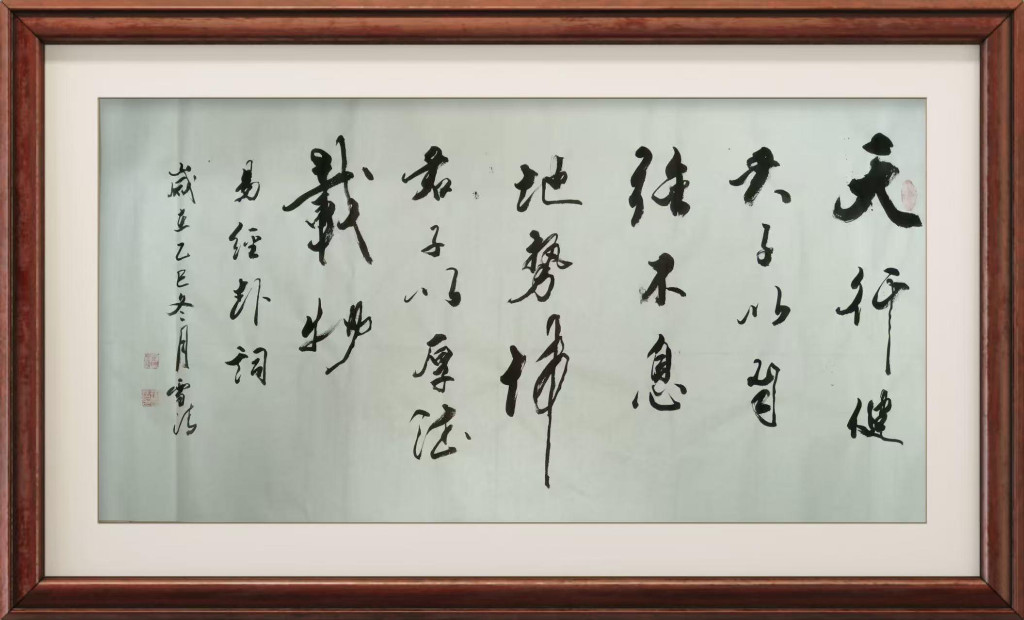 天行健
君子以自
強不息
地勢坤
君子以厚德
載物
易經卦詞
歲在乙巳冬月雪涛